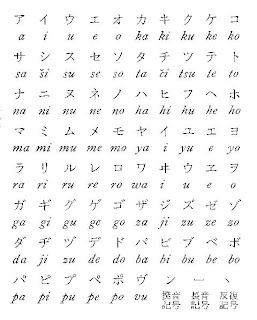 ア イ ウ エ オ カ キ ク ケ コ
a i u e o ka ki ku ke ko
サ シ ス セ ソ タ チ ツ テ ト
sa ši su se so ta či tsu te to
ナ ニ ヌ ネ ノ ハ ヒ フ ヘ ホ
na ni nu ne no ha hi hu he ho
マ ミ ム メ モ ヤ イ ユ エ ヨ
ma mi mu me mo ya i yu e yo
ラ リ ル レ ロ ワ ヰ ウ ヱ ヲ
ra ri ru re ro wa i u e o
ガ ギ グ ゲ ゴ ザ ジ ズ ゼ ゾ
ga gi gu ge go za ji zu ze zo
ダ ヂ ヅ デ ド バ ビ ブ ベ ボ
da ji zu de do ba bi bu be bo
パ ピ プ ペ ポ ヴ ン ー ヽ
pa pi pu pe po vu 撥音 長音 反復
記号 記号 記号